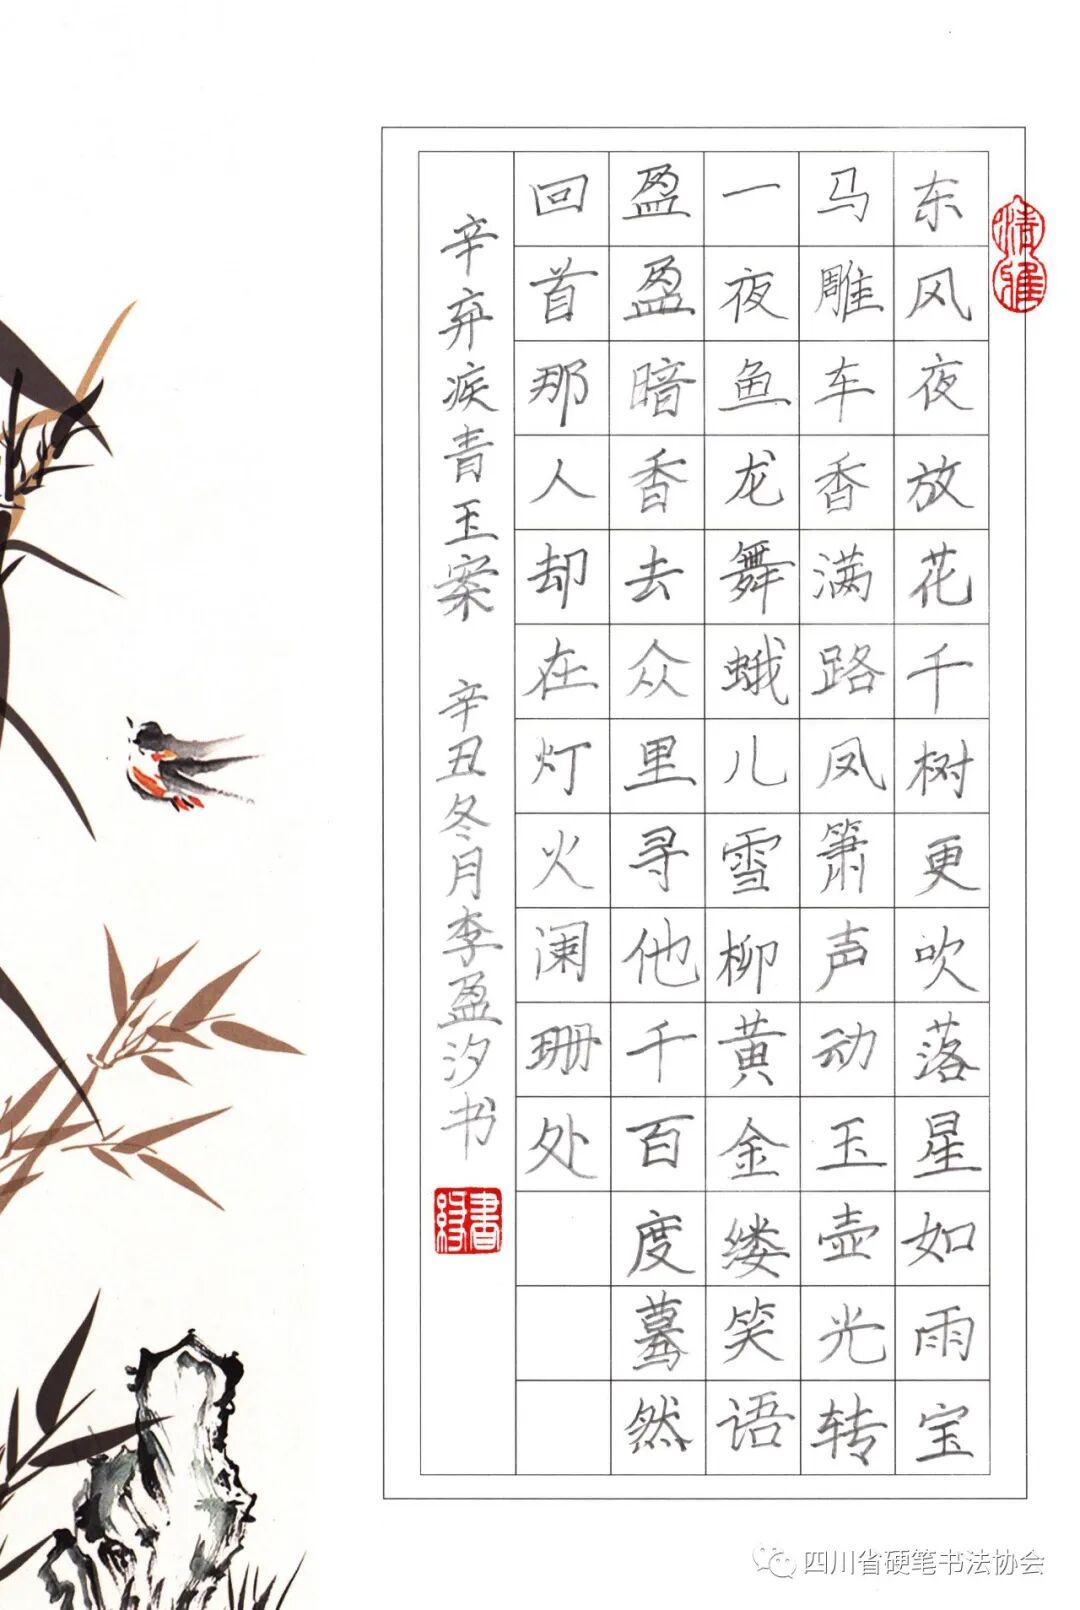 清雅
东风夜放花千树更吹落星如雨宝
马雕车香满路凤箫声动玉壶光转
一夜鱼龙舞蛾儿雪柳黄金缕笑语
盈盈暗香去众里寻他千百度蓦然
回首那人却在灯火澜珊处
辛弃疾青玉案 辛丑冬月李盈汐书
四川省硬笔书法协会